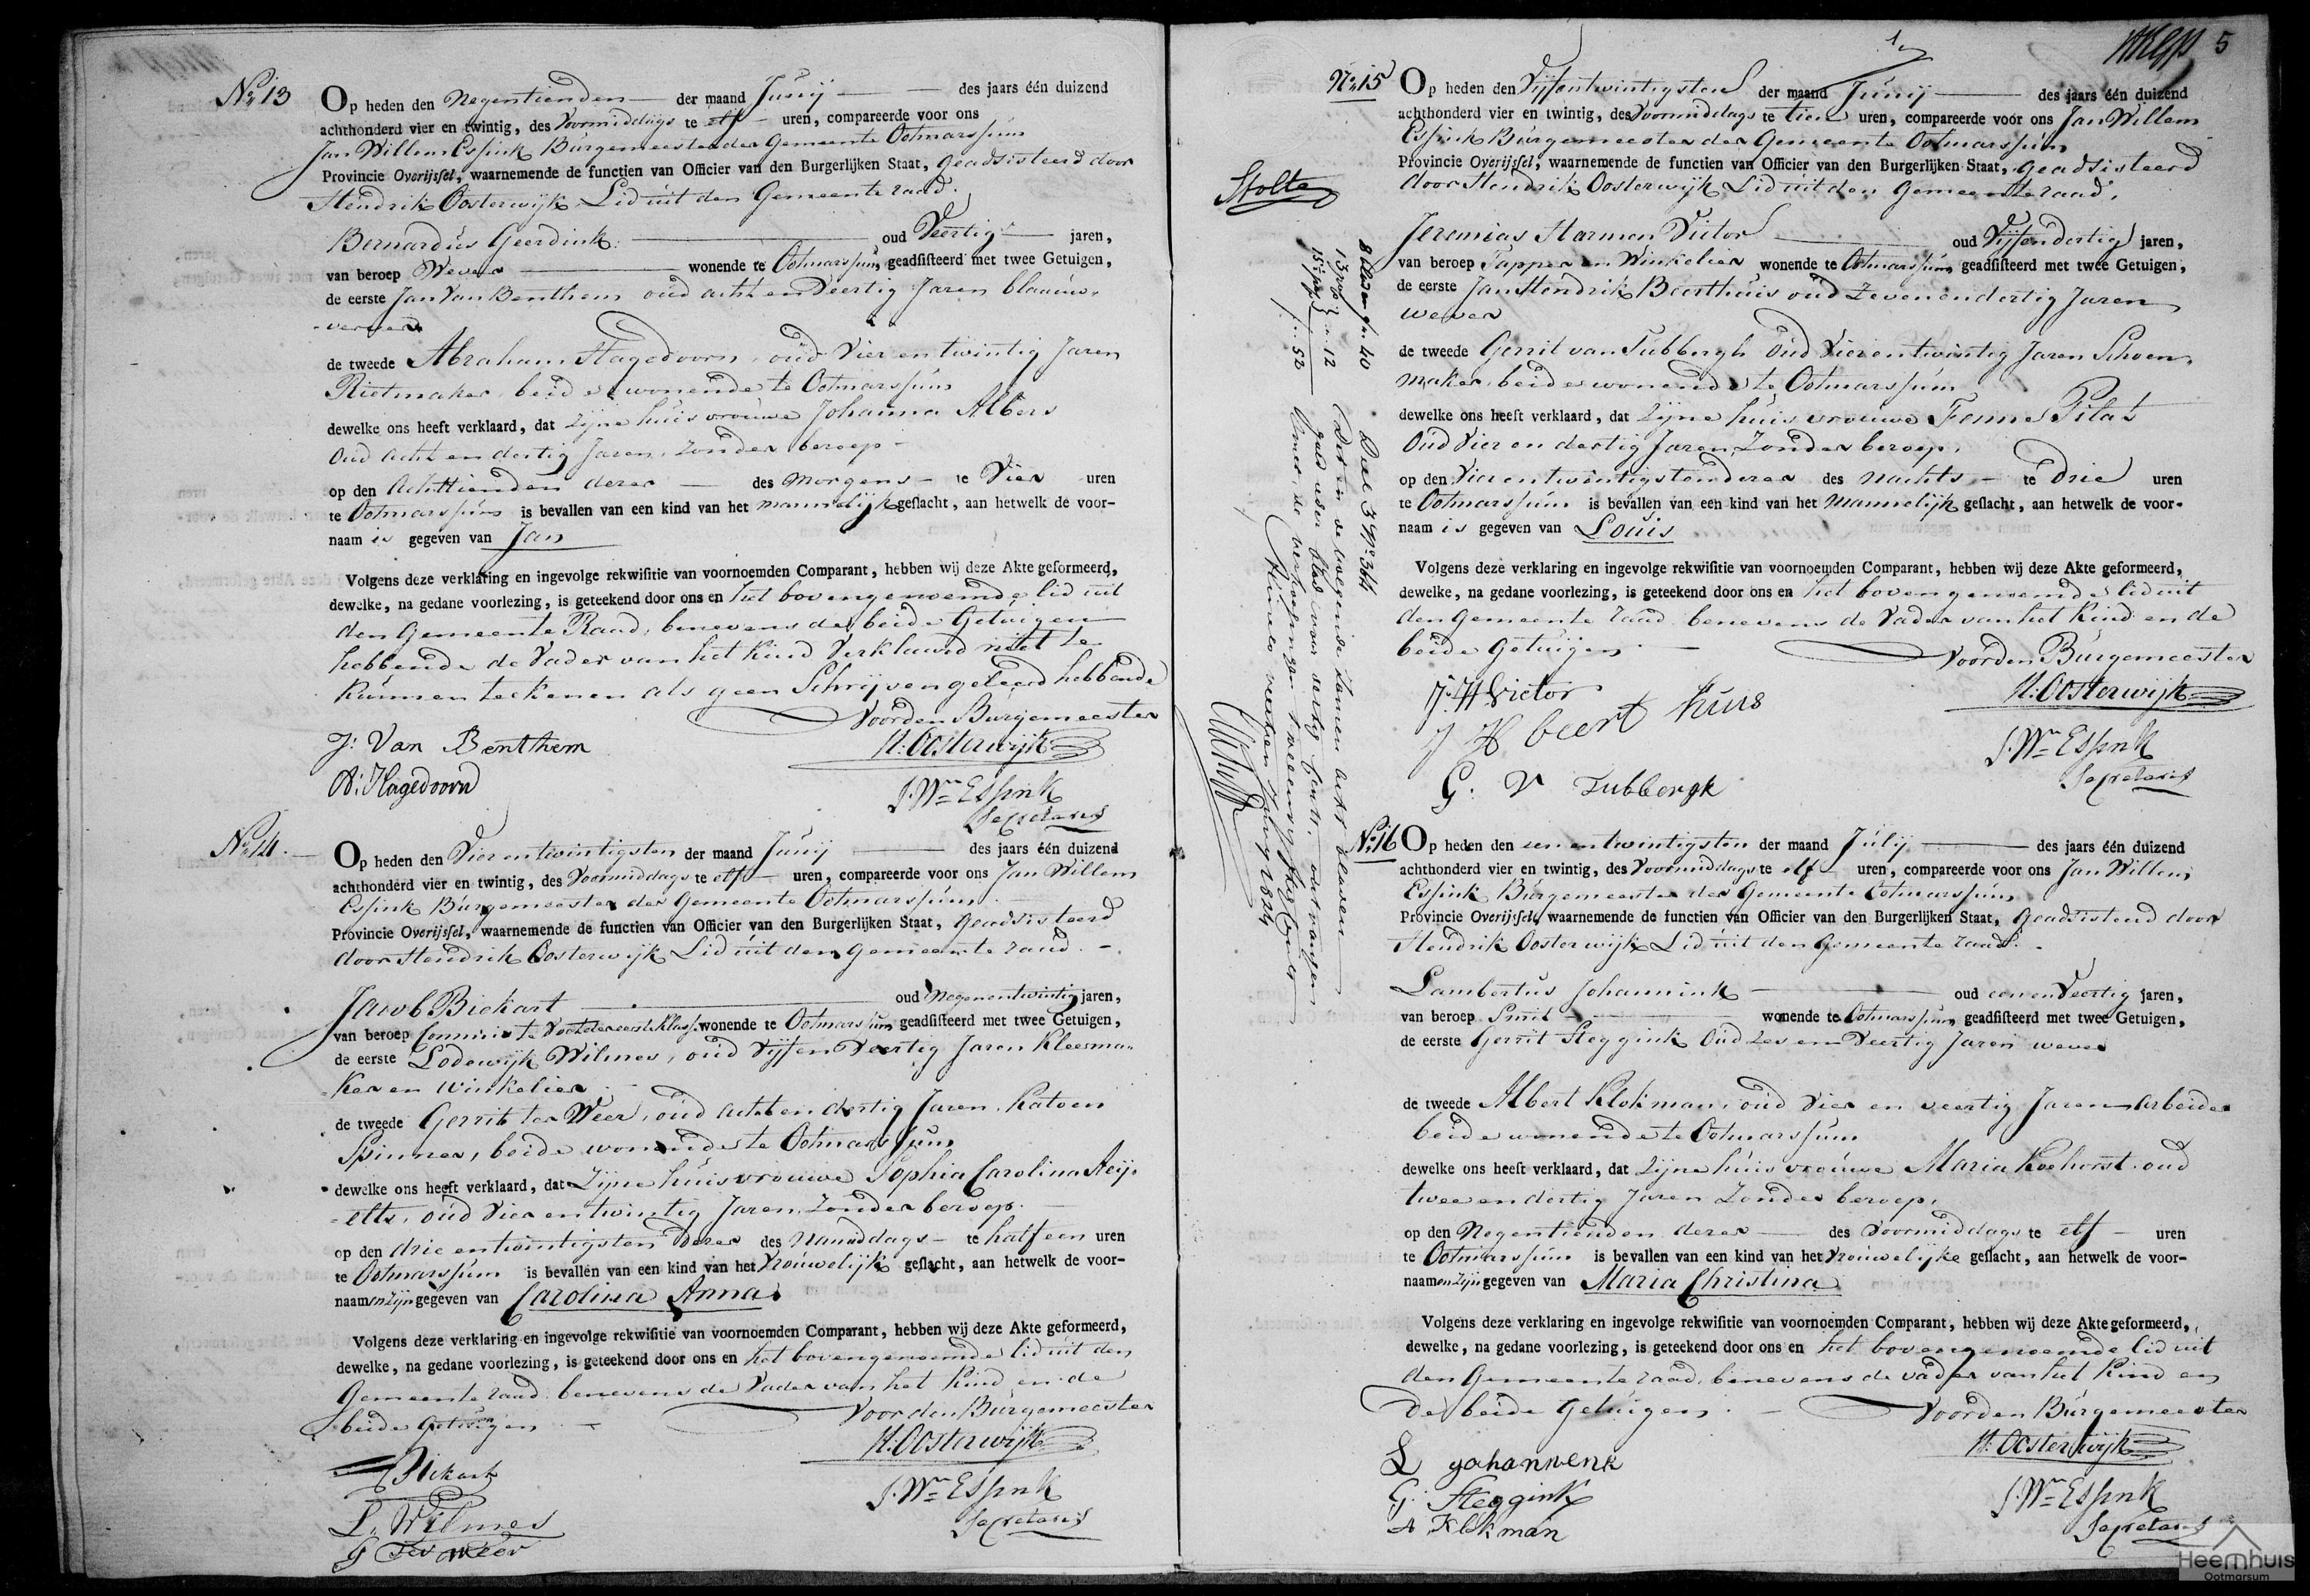 No 13
Op heden den Negentienden der maand Junij des jaars één duizend
achthonderd vier en twintig, des Voormiddags te elf uren, compareerde voor ons
Jan Willem Essink Burgemeester der Gemeente Ootmarssum
Provincie Overijssel, waarnemende de functien van Officier van den Burgerlijken Staat, geadsisteerd door
Hendrik Oosterwijk Lid uit den Gemeente raad.
Bernardus Geerdink oud Veertig jaren,
van beroep Wever wonende te Ootmarssum geadsisteerd met twee Getuigen,
de eerste Jan Van Benthem oud acht en Veertig Jaren blaauw-
verver
de tweede Abraham Hagedoorn, oud Vier en twintig Jaren
Rietmaker, beide wonende te Ootmarssum
dewelke ons heeft verklaard, dat Zijne huisvrouwe Johanna Albers
Oud acht en dertig Jaren, Zonder beroep
op den Achttienden dezer des morgens te Vier uren
te Ootmarssum is bevallen van een kind van het mannelijk geslacht, aan hetwelk de voor-
naam is gegeven van Jan
Volgens deze verklaring en ingevolge rekwisitie van voornoemden Comparant, hebben wij deze Akte geformeerd,
dewelke, na gedane voorlezing, is geteekend door ons en het bovengenoemde lid uit
den Gemeente Raad, benevens de beide Getuigen
hebbende de Vader van het Kind Verklaard niet te
Kunnen teekenen als geen Schrijven geleerd hebbende
Voor den Burgemeester
J: Van Benthem H: Oosterwijk
A: Hagedoorn J. Wm Essink
Secretaris
No 14.
Op heden den Vier en twintigsten der maand Junij des jaars één duizend
achthonderd vier en twintig, des Voormiddags te elf uren, compareerde voor ons Jan Willem
Essink Burgemeester der Gemeente Ootmarssum
Provincie Overijssel, waarnemende de functien van Officier van den Burgerlijken Staat, geadsisteerd
door Hendrik Oosterwijk Lid uit den gemeente raad.
Jacob Biekart oud Negenentwintig jaren,
van beroep Commies te Voet der eerste Klasse wonende te Ootmarssum geadsisteerd met twee Getuigen,
de eerste Lodewijk Wilmes, oud Vijf en Veertig Jaren Kleerma-
ker en Winkelier
de tweede Gerrit ter Weer, oud acht en dertig Jaren, Katoen
Spinner, beide wonende te Ootmarssum
dewelke ons heeft verklaard, dat Zijne huisvrouwe Sophia Carolina
oud Vier en twintig Jaren, Zonder beroep.
op den drie entwintigsten dezer des Namiddags te half een uren
te Ootmarssum is bevallen van een kind van het Vrouwelijk geslacht, aan hetwelk de voor-
naamen zijn gegeven van Carolina Anna
Volgens deze verklaring en ingevolge rekwisitie van voornoemden Comparant, hebben wij deze Akte geformeerd,
dewelke, na gedane voorlezing, is geteekend door ons en het bovengenoemde lid uit den
Gemeente raad, benevens de Vader van het Kind en de
beide Getuigen
Voor den Burgemeester
H: Oosterwijk
Biekart
L. Wilmes J. Wm Essink
G Ter Weer Secretaris
5
No 15
Op heden den Vijfentwintigsten der maand Junij des jaars één duizend
achthonderd vier en twintig, des Voormiddags te tien uren, compareerde voor ons Jan Willem
Essink Burgemeester der Gemeente Ootmarssum
Provincie Overijssel, waarnemende de functien van Officier van den Burgerlijken Staat, geadsisteerd
door Hendrik Oosterwijk Lid uit den gemeente raad.
Jeremias Harmen Victor oud Vijfendertig jaren,
van beroep Tapper en Winkelier wonende te Ootmarssum geadsisteerd met twee Getuigen,
de eerste Jan Hendrik Beerthuis oud Zevenendertig Jaren
wever
de tweede Gerrit van Tubbergh Oud Vierentwintig Jaren Schoen-
maker, beide wonende te Ootmarssum
dewelke ons heeft verklaard, dat Zijne huisvrouwe Fenne Pilat
Oud Vier en dertig Jaren Zonder beroep,
op den Vier entwintigsten dezer des Nachts te drie uren
te Ootmarssum is bevallen van een kind van het Mannelijk geslacht, aan hetwelk de voor-
naam is gegeven van Louis
Volgens deze verklaring en ingevolge rekwisitie van voornoemden Comparant, hebben wij deze Akte geformeerd,
dewelke, na gedane voorlezing, is geteekend door ons en het bovengenoemde lid uit
den Gemeente raad benevens de Vader van het Kind en de
beide Getuigen
Voor den Burgemeester
J. H Victor H: Oosterwijk
J H beert huis
G. V Tubbergk J. Wm Essink
Secretaris
Stolte
Deel 3 No 364
No 16
Op heden den een entwintigsten der maand Julij des jaars één duizend
achthonderd vier en twintig, des Voormiddags te elf uren, compareerde voor ons Jan Willem
Essink Burgemeester der Gemeente Ootmarssum
Provincie Overijssel, waarnemende de functien van Officier van den Burgerlijken Staat, geadsisteerd door
Hendrik Oosterwijk Lid uit den gemeente raad.
Lambertus Johannink oud een en Veertig jaren,
van beroep Smit wonende te Ootmarssum geadsisteerd met twee Getuigen,
de eerste Gerrit Steggink Oud Zes en Veertig Jaren wever
de tweede Albert Klokman, oud Vier en veertig Jaren arbeider
beide wonende te Ootmarssum
dewelke ons heeft verklaard, dat Zijne huisvrouwe Maria Koehorst oud
twee en dertig Jaren Zonder beroep,
op den Negentienden dezer des Voormiddags te elf uren
te Ootmarssum is bevallen van een kind van het Vrouwelijke geslacht, aan hetwelk de voor-
naamen zijn gegeven van Maria Christina
Volgens deze verklaring en ingevolge rekwisitie van voornoemden Comparant, hebben wij deze Akte geformeerd,
dewelke, na gedane voorlezing, is geteekend door ons en het bovengenoemde lid uit
den Gemeente raad, benevens de vader van het Kind en
de beide Getuigen.
Voor den Burgemeester
H: Oosterwijk
L Johannenk
G. Steggink J. Wm Essink
A Klokman Secretaris
Heemhuis
Ootmarsum